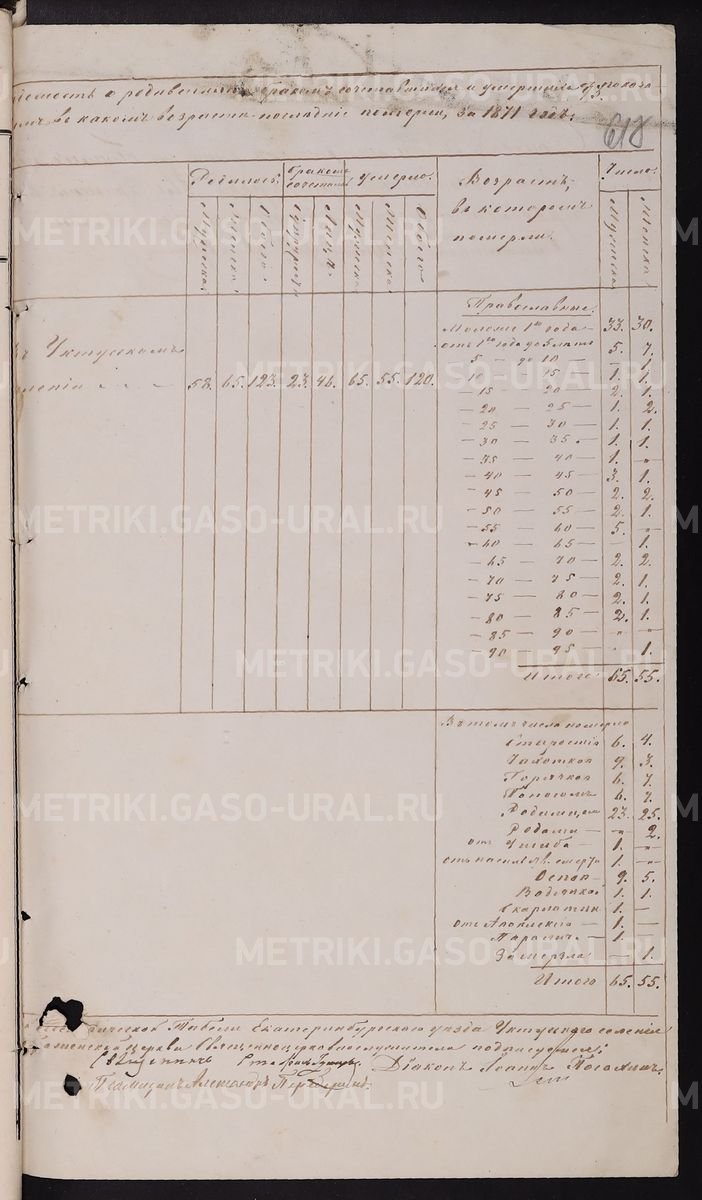 о родившихся бракомъ сочетавшихся и умершихъ съ показа-
въ какомъ возрастѣ последніе померли, за 1871 годъ.
618
Родилось: Бракомъ сочетал. Умерло. Возрастъ, въ которомъ померли. Число
Мужеска Женска Обоего Супружествъ Лицъ Мужеска Женска Обоего Мужеска Женска
Православные.
Моложе 1го года — 33. 30.
отъ 1го года до 5 лѣтъ 5. 7.
5 — до 10 — — 1.
Въ Уктусскомъ
селеніи 58. 65. 123. 23. 46. 65. 55. 120.
10 — 15 — 1. 1.
— 15 — 20 — 2. 1.
— 20 — 25 — 1. 2.
— 25 — 30 — 1. 1.
— 30 — 35. — 1. 1.
— 35 — 40 — 1. „
— 40 — 45 — 3. 1.
— 45 — 50 — 2. 2.
— 50 — 55 — 2. 1.
— 55 — 60 — 5. „
— 60 — 65 — - 1.
— 65 — 70 — 2. 2.
— 70 — 75 — 2. 1.
— 75 — 80 — 2. 1.
— 80 — 85 — 2. 1.
— 85 — 90 — „ „
— 90 — 95 — „ 1.
Итого: 65. 55.
Въ томъ числѣ померло
Старостію 6. 4.
Чахоткой 9. 3.
Горячкой 6. 7.
Поносомъ 6. 7.
Родимцемъ 23. 25.
Родами — „ 2.
отъ Ушиба — 1. „
1. „
Оспой — 9. 5.
Водянкой 1. 1.
Скарлатин 1. —
отъ Апоплексіи 1. —
Паралич. — 1. —
Замерзла — — 1.
Итого 65. 55.
Табели Екатеринбургскаго уѣзда Уктусскаго селенія
церкви Священноцерковнослужители подписуемся:
Священникъ Діаконъ Іоаннъ
Псаломщикъ Александръ
METRIKI.GASO-URAL.RU